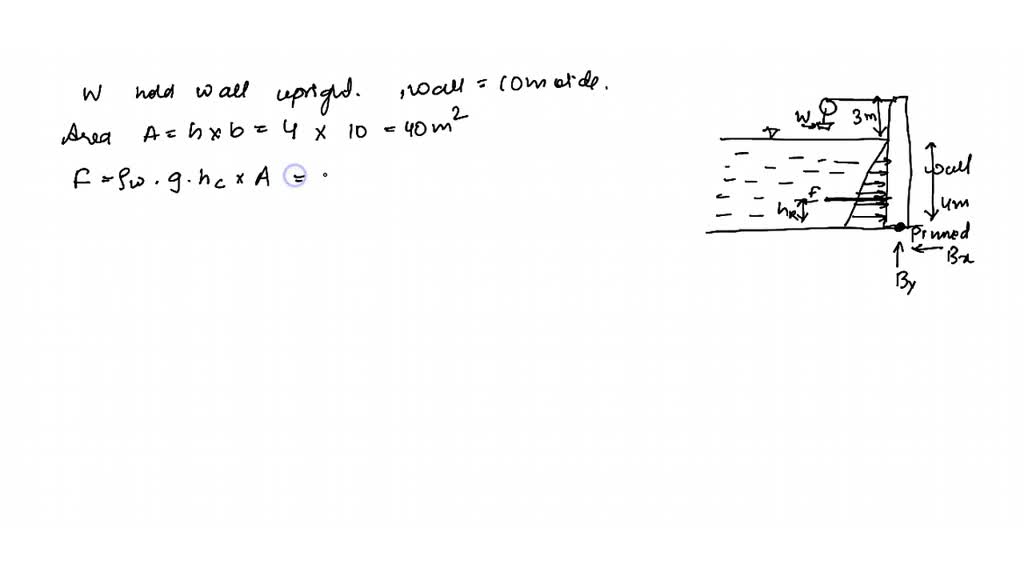 W hold wall upright. , wall = 10m wide.
Area A = h × b = 4 × 10 = 40m²
F = ρw · g · hc × A =
W
3m
F
hR
wall
4m
Pinned
Bx
By